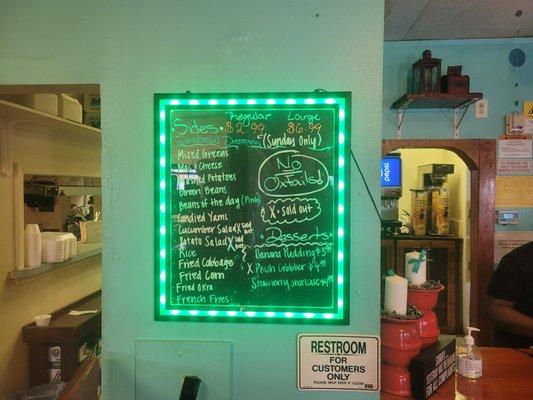 Regular Large
Sides. $2.99 $6.99
Cornbread Dressing (Sunday Only)
Mixed Greens
Mac & Cheese
Mashed Potatoes
Green Beans
Beans of the day (Pinto)
Candied Yams
Cucumber Salad X sold out
Potato Salad X sold out
Rice
Fried Cabbage
Fried Corn
Fried Okra
French Fries
No
Oxtails!
X - sold out
Desserts
Banana Pudding
X Peach Cobbler $4.99
Strawberry Shortcake
pepsi
RESTROOM
FOR
CUSTOMERS
ONLY
PLEASE HELP KEEP IT CLEAN